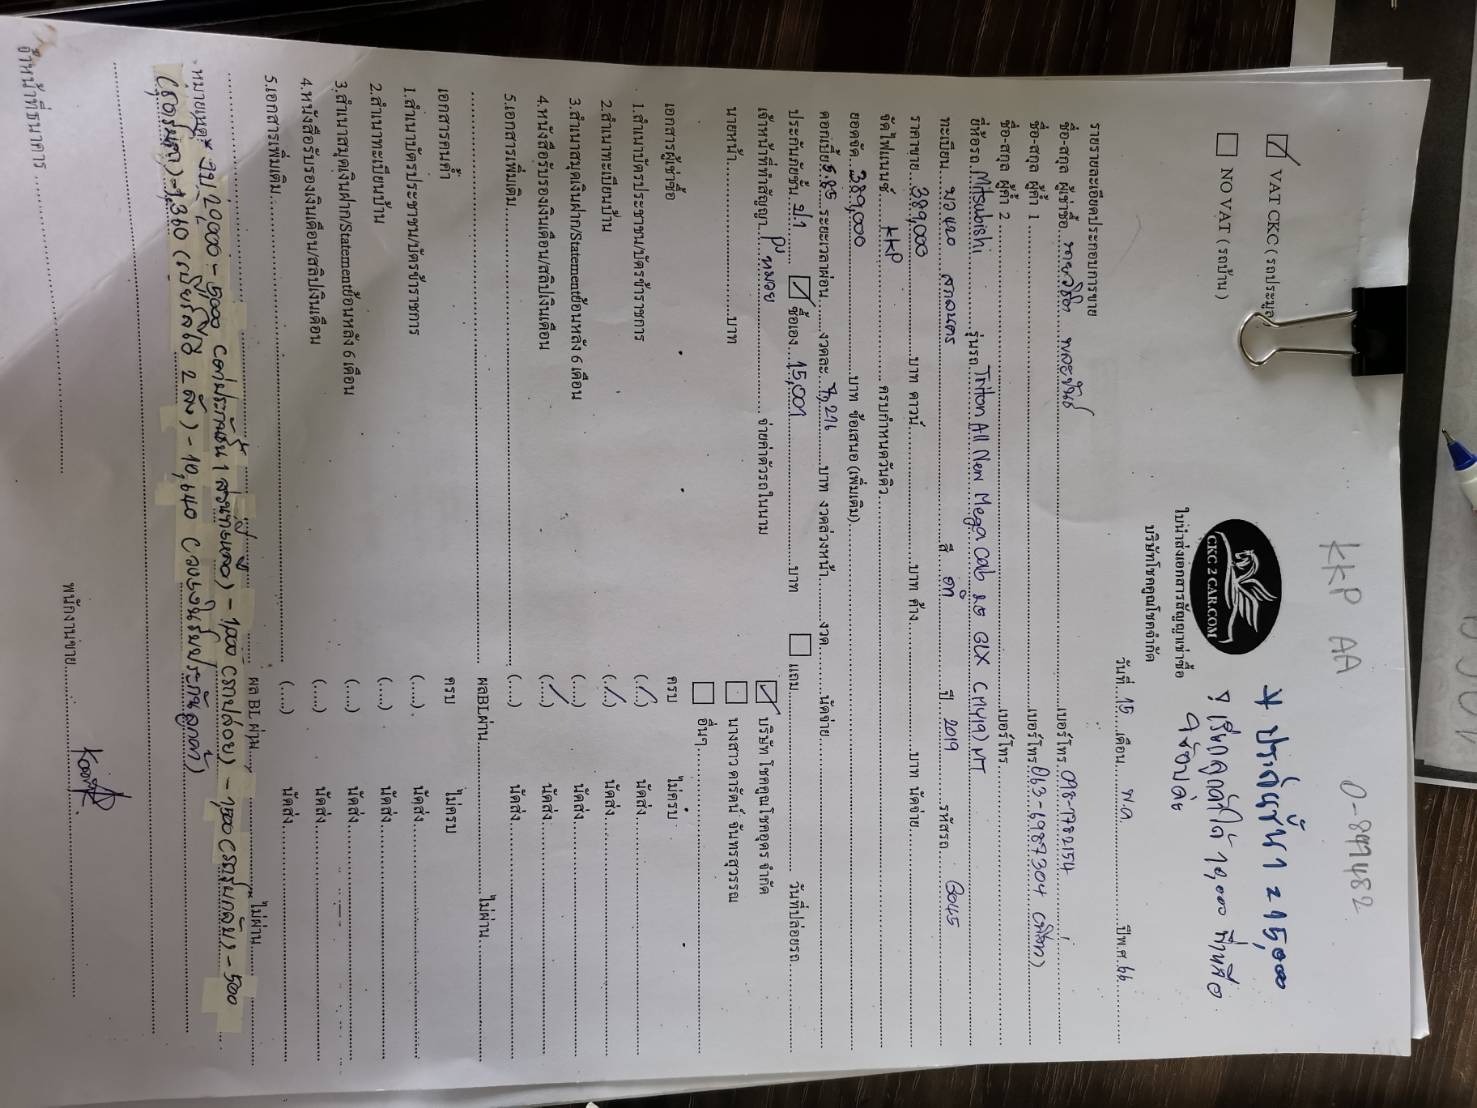 KKP AA
0-897482
* ประกันชั้น 1 = 15,000
เรียกลูกค้าได้ 10,000 ที่เหลือ
CKC 2 CAR.COM
☑ VAT CKC ( รถประมูล
☐ NO VAT ( รถบ้าน )
ใบนำส่งเอกสารสัญญาเช่าซื้อ
บริษัทโชคคูณโชคจำกัด
วันที่ 15 เดือน พ.ค. ปีพ.ศ. 66
รายรายละเอียดประกอบการขาย
ชื่อ-สกุล ผู้เช่าซื้อ เบอร์โทร 098-1782154
ชื่อ-สกุล ผู้ค้ำ 1 เบอร์โทร 063-6987304
ชื่อ-สกุล ผู้ค้ำ 2 เบอร์โทร
ยี่ห้อรถ Mitsubishi รุ่นรถ Triton All New Mega Cab 2.5 GLX (MY19) MT
ทะเบียน สกลนคร สี ดำ ปี 2019 รหัสรถ
ราคาขาย 389,000 บาท ดาวน์ บาท ค้าง บาท นัดจ่าย
จัดไฟแนนซ์ KKP ครบกำหนดวันคิว
ยอดจัด 389,000 บาท ข้อเสนอ (เพิ่มเติม)
ดอกเบี้ย 5.85 ระยะเวลาผ่อน งวดละ 7,276 บาท งวดล่วงหน้า งวด นัดจ่าย
ประกันภัยชั้น ป.1 ☑ ซื้อเอง 15,001 บาท ☐ แถม วันที่ปล่อยรถ
เจ้าหน้าที่ทำสัญญา จ่ายค่าตัวรถในนาม ☑ บริษัท โชคคูณโชคอุดร จำกัด
นายหน้า บาท ☐ นางสาว ดารัตน์ จันทรสุวรรณ
☐ อื่นๆ
เอกสารผู้เช่าซื้อ ครบ ไม่ครบ
1.สำเนาบัตรประชาชน/บัตรข้าราชการ (/) นัดส่ง
2.สำเนาทะเบียนบ้าน (/) นัดส่ง
3.สำเนาสมุดเงินฝาก/Statementย้อนหลัง 6 เดือน (....) นัดส่ง
4.หนังสือรับรองเงินเดือน/สลิปเงินเดือน (/) นัดส่ง
5.เอกสารเพิ่มเติม (....) นัดส่ง
ผลBLผ่าน ไม่ผ่าน
เอกสารคนค้ำ ครบ ไม่ครบ
1.สำเนาบัตรประชาชน/บัตรข้าราชการ (....) นัดส่ง
2.สำเนาทะเบียนบ้าน (....) นัดส่ง
3.สำเนาสมุดเงินฝาก/Statementย้อนหลัง 6 เดือน (....) นัดส่ง
4.หนังสือรับรองเงินเดือน/สลิปเงินเดือน (....) นัดส่ง
5.เอกสารเพิ่มเติม (....) นัดส่ง
ผล BL ผ่าน ไม่ผ่าน
*หมายเหตุ* งบ 20,000 - 5,000 - 1,000 - 1,500 - 500
- 1,360 - 10,640
เจ้าหน้าที่ธนาคาร พนักงานขาย